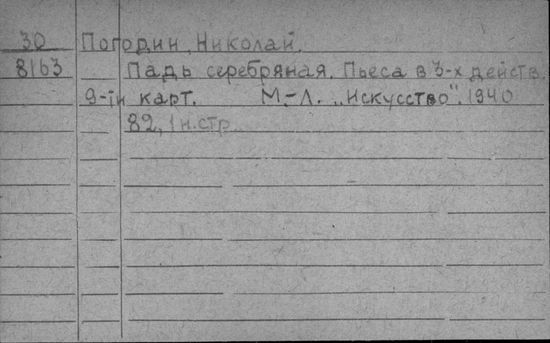 30 Погодин, Николай.
8163 Падь серебряная. Пьеса в 3-х действ.
9-ти карт. М.-Л. „Искусство". 1940
82, 1 н.стр.